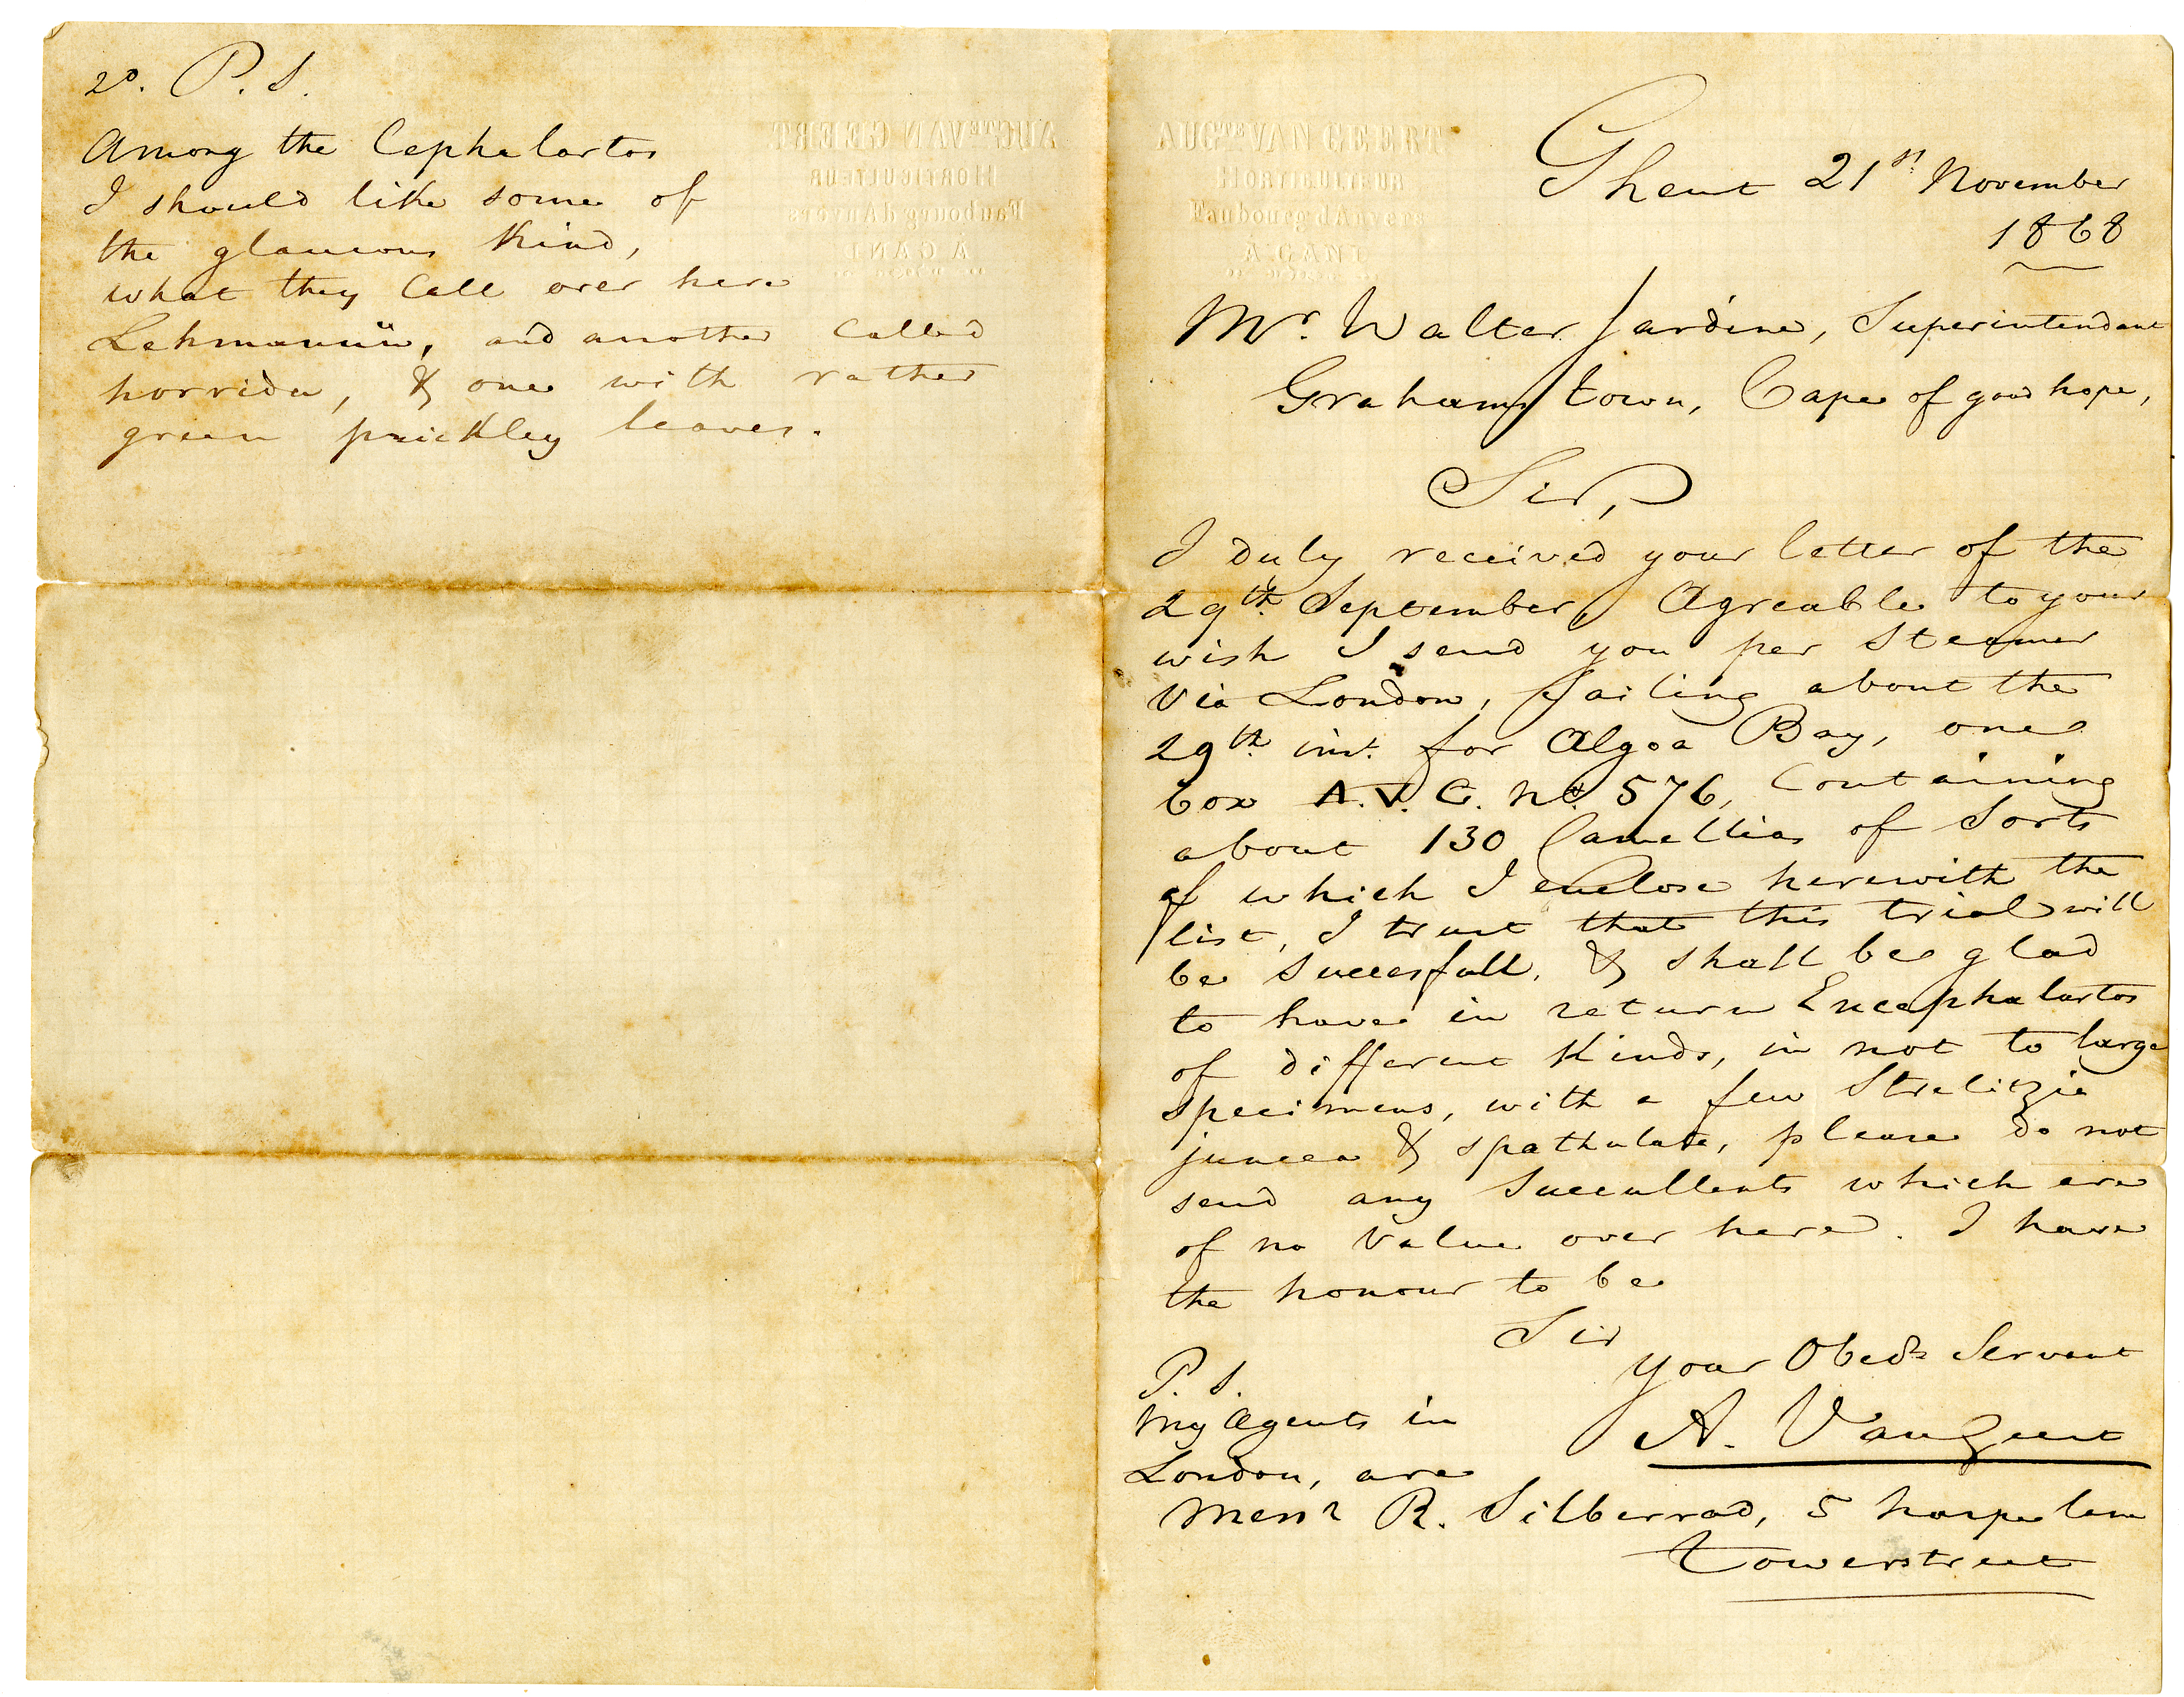 AUG^TE VAN GEERT
HORTICULTEUR
Faubourg d'Anvers
A GAND
Ghent 21st November
1868
Mr. Walter Jardine, Superintendant
Grahams town, Cape of good hope,
Sir,
I duly received your letter of the
29th September, Agreable to your
wish I send you per Steamer
via London, Sailing about the
29th inst. for Algoa Bay, one
box A.V.G. No. 576, Containing
about 130 Camellias of Sorts
of which I enclose herewith the
list, I trust that this trial will
be Succesfull, & shall be glad
to have in return Encephalartos
of different Kinds, in not to large
specimens, with a few Strelitzia
juncea & spathulata, please do not
send any Succullents which are
of no Value over here. I have
the honour to be
Sir
your Obedt Servant
A. Van Geert
P.S.
My Agents in
London, are
Messrs R. Silberrad, 5 harpe lane
Towerstreet
2o. P.S.
Among the Cephalartos
I should like some of
the glaucous Kind,
what they Call over here
Lehmannii, and another Called
horrida, & one with rather
green prickley leaves.